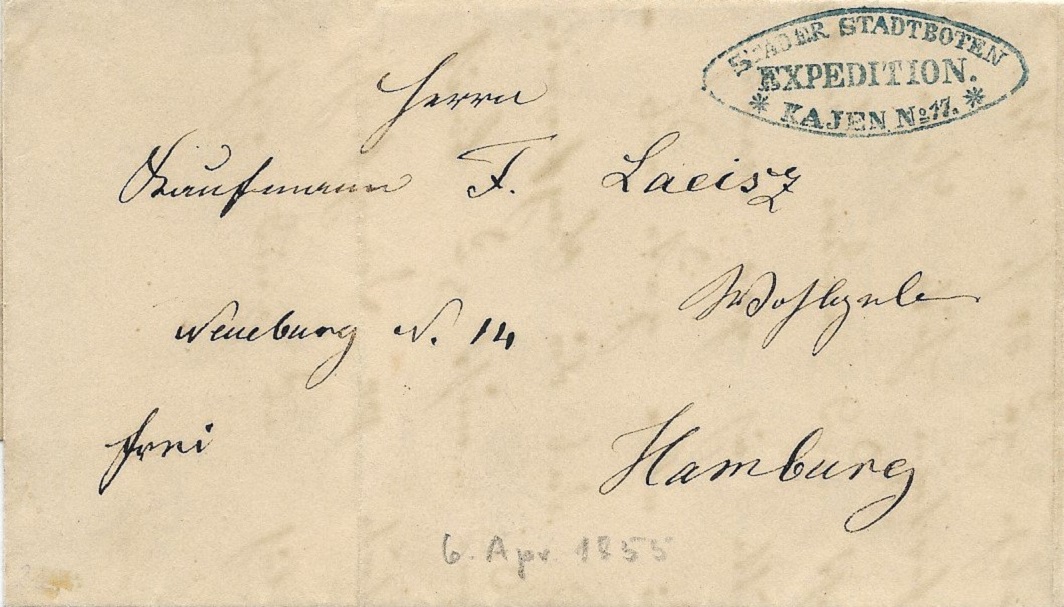 STADER STADTBOTEN
EXPEDITION.
* KAJEN No 17. *
Herrn
Kaufmann F. Laeisz
Wohlgeb
Neueburg N. 14
frei
Hamburg
6. Apr. 1855